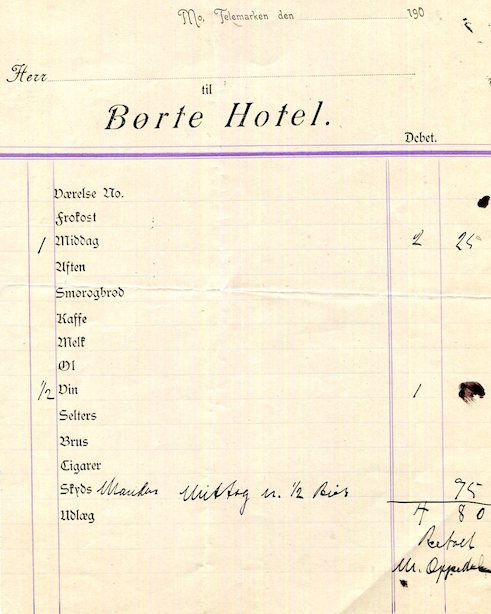 Mo, Telemarken den 190
Herr
til
Børte Hotel.
Debet.
Værelse No.
Frokost
1 Middag 2 25
Aften
Smørogbrød
Kaffe
Melk
Øl
1/2 Vin 1
Selters
Brus
Cigarer
Skyds Mittag 1/2 75
Udlæg 4 80
Betalt